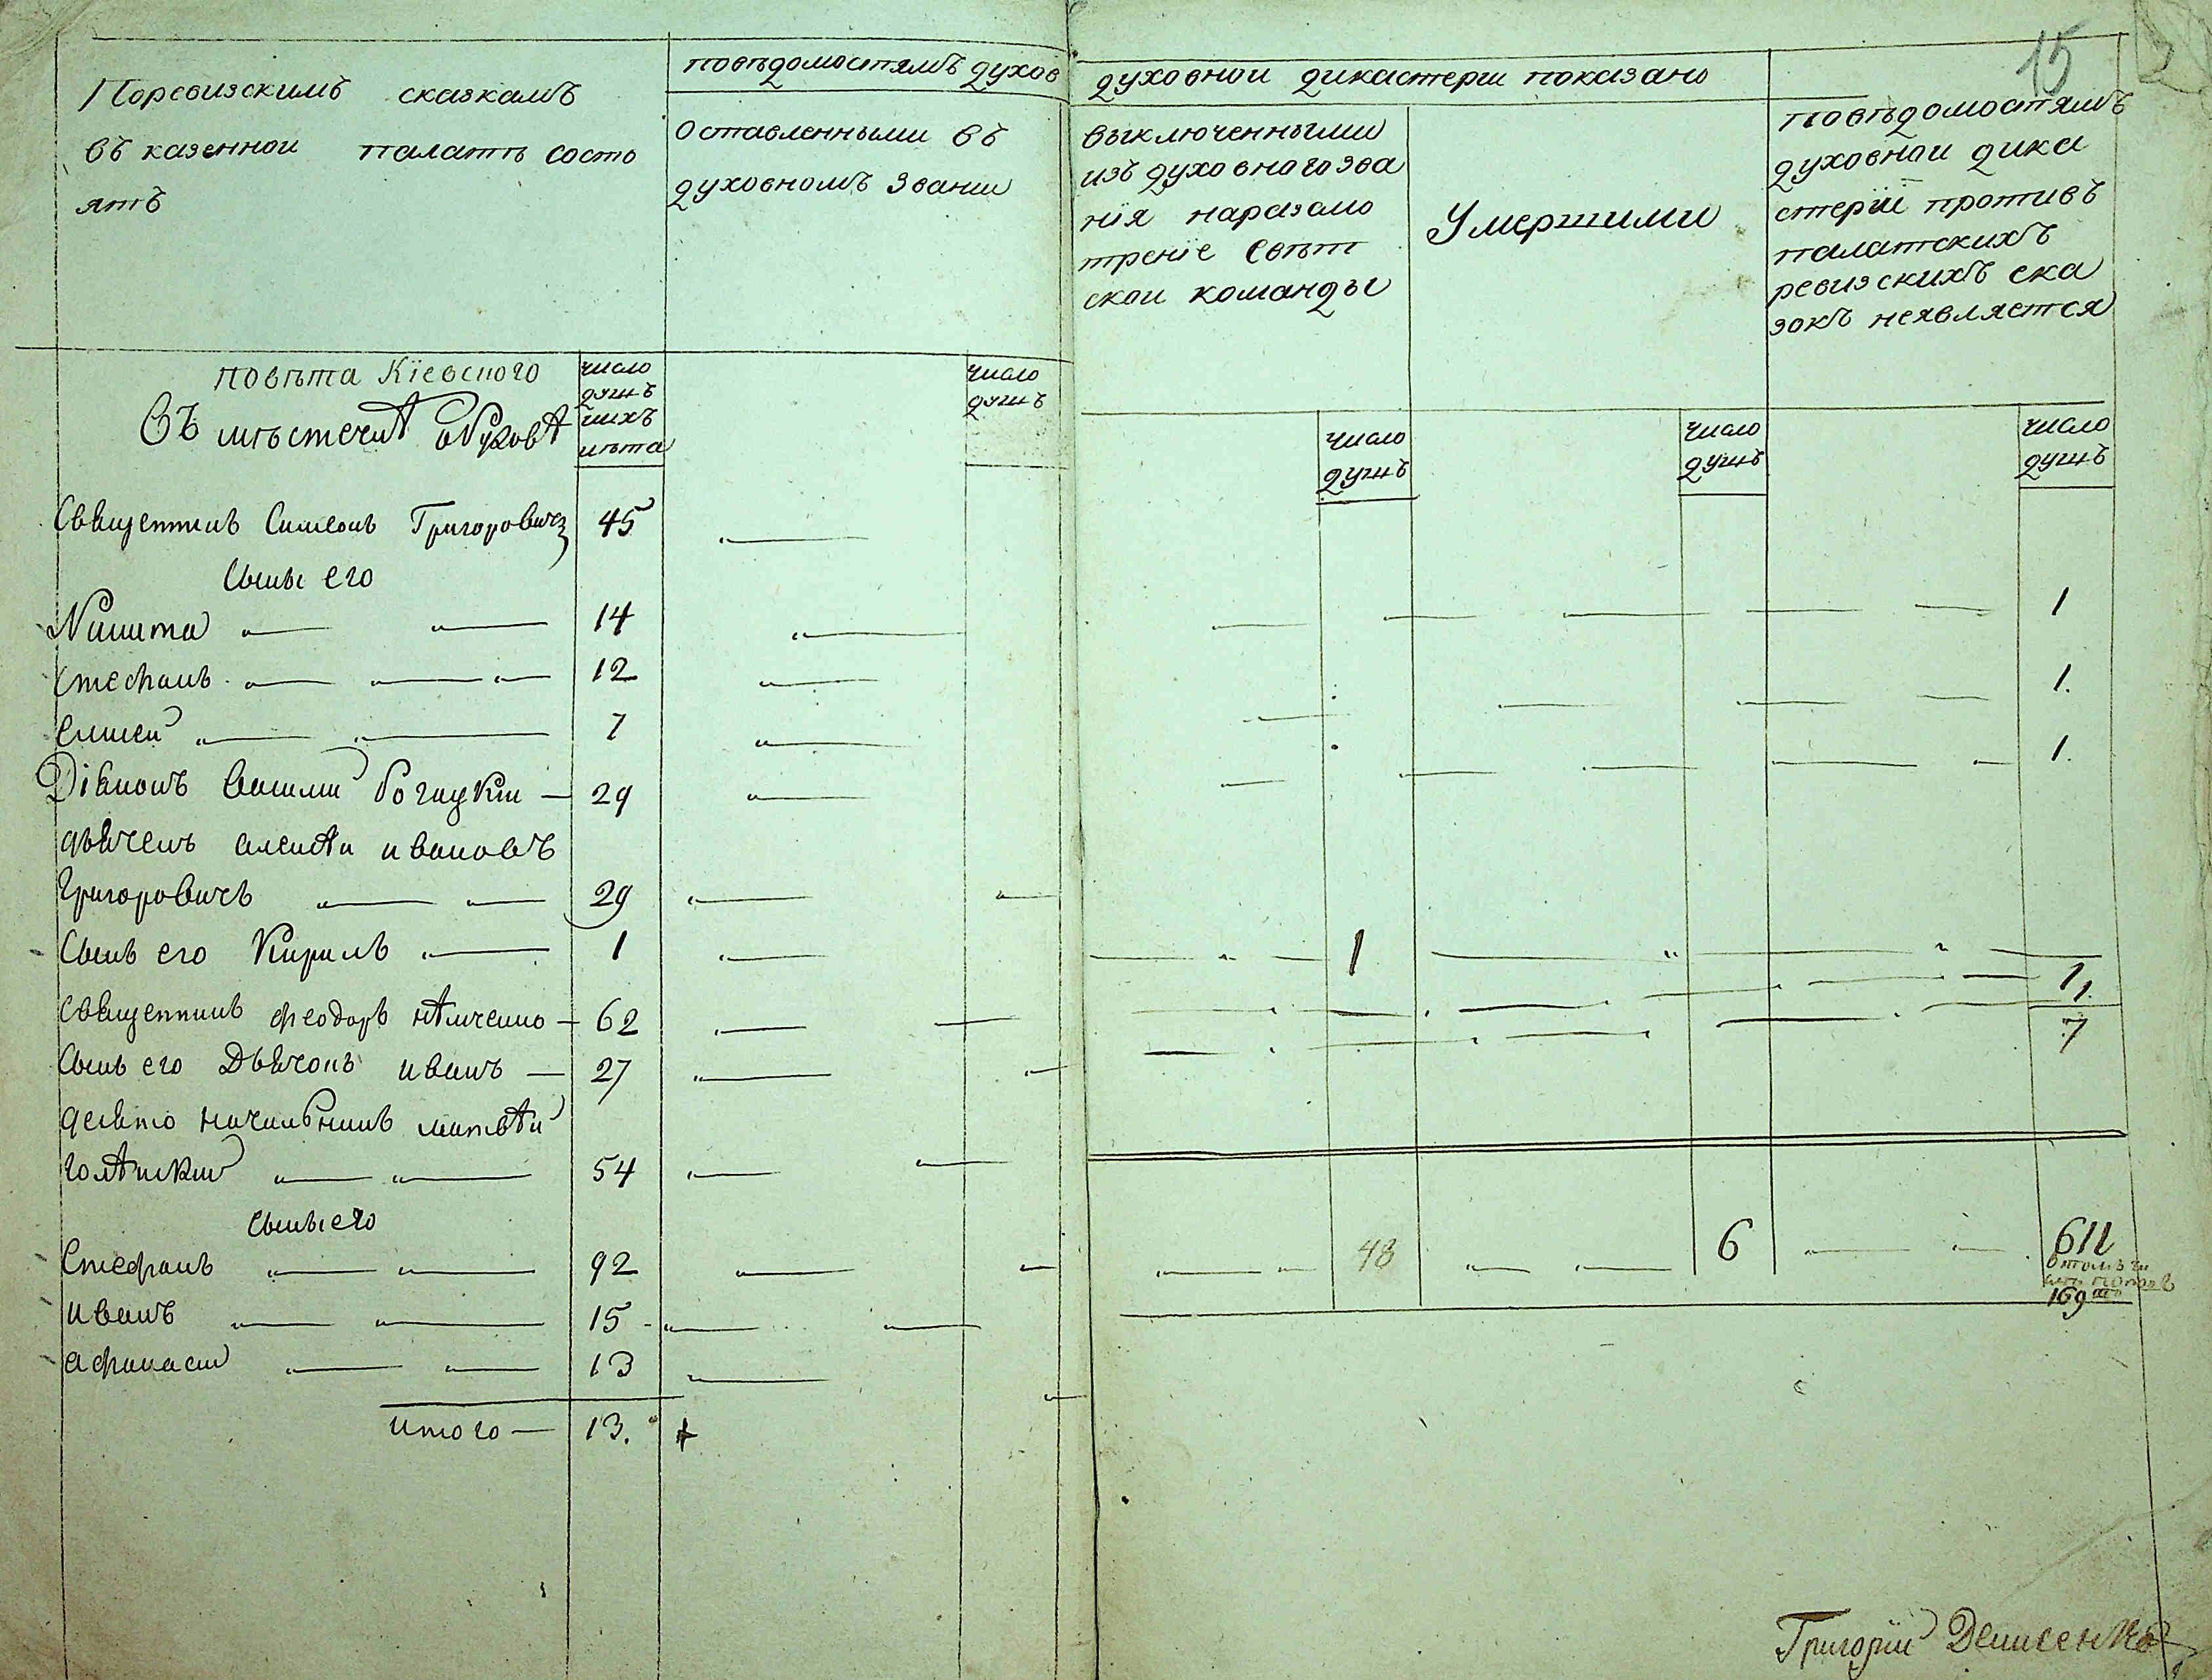 Поревизскимъ сказкамъ
въ казеннои палатѣ состо
ятъ
повѣдомостямъ духов
Оставленными въ
духовномъ звании
духовнои дикастерги показано
выключенными
изъ духовного зва
нїя наразсмо
трение свѣт
скои команды
Умершими
15
повѣдомостямъ
духовнои дика
стерїи противъ
палатскихъ
ревизскихъ ска
зокъ неявляется
повѣта Кїевского
Въ мѣстечкѣ обуховѣ
число
душъ
ихъ
лѣта
число
душъ
число
душъ
число
душъ
число
душъ
Священникъ Симеонъ Григоровичъ 45
Сыны его
Никита 14 1
Стефанъ 12 1.
елисеи 7 1.
Діяконъ Василии рогацкии 29
дьячекъ алексѣи ивановъ
Григоровичъ 29
Сынъ его Кирилъ 1 1
Священникъ феодоръ нѣмченко 62 1.
Сынъ его Дьячокъ иванъ 27 7
десято начальникъ матвѣи
54
сыны его
Стефанъ 92 48 6 611
иванъ 15
афанасии 13
169
итого 13.
Григорїи Денисенко